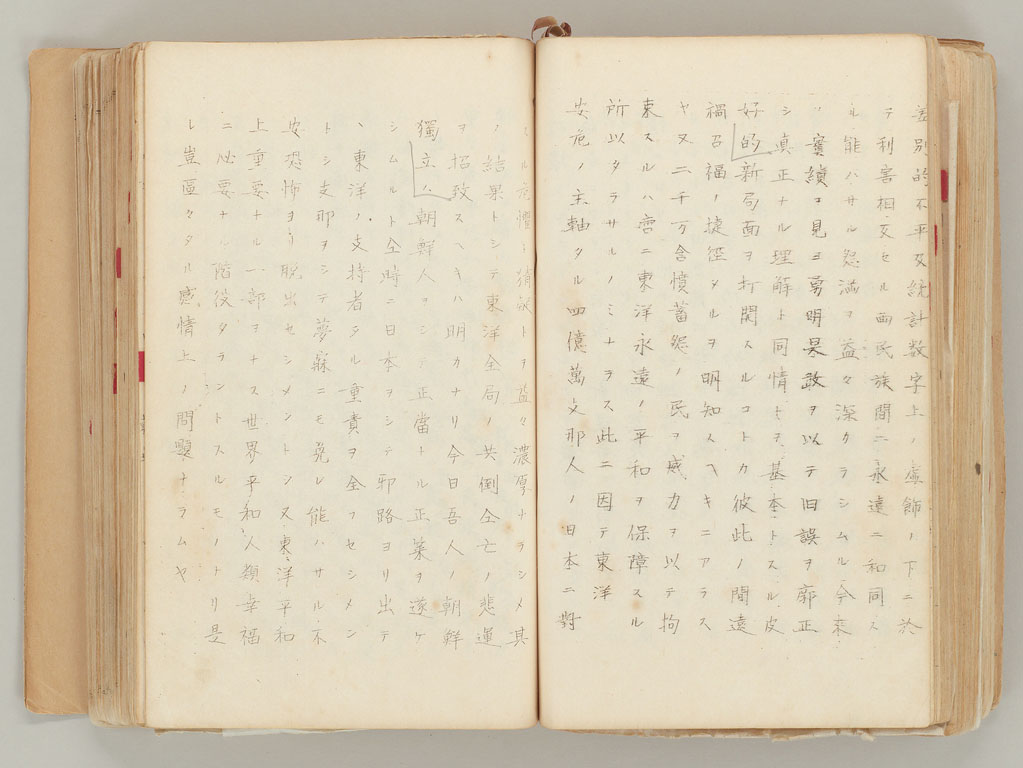 差別的不平及統計数字上ノ虚飾ノ下ニ於
テ利害相反セル両民族間ニ永遠ニ和同ス
ル能ハサル怨満ヲ益々深カラシムル今来
ノ實績ヲ見ヨ勇明果敢ヲ以テ旧誤ヲ廓正
シ真正ナル理解ト同情トヲ基本トスル友
好的新局面ヲ打開スルコトカ彼此ノ間遠
禍召福ノ捷徑タルヲ明知スヘキニアラス
ヤ又二千万含憤蓄怨ノ民ヲ威力ヲ以テ拘
束スルハ啻ニ東洋永遠ノ平和ヲ保障スル
所以タラサルノミナラス此ニ因テ東洋
安危ノ主軸タル四億萬支那人ノ日本ニ對
スル危懼ト猜疑トヲ益々濃厚ナラシメ其
ノ結果トシテ東洋全局ノ共倒仝亡ノ悲運
ヲ招致スヘキハ明カナリ今日吾人ノ朝鮮
獨立ハ朝鮮人ヲシテ正當ナル正業ヲ遂ケ
シムルト仝時ニ日本ヲシテ邪路ヨリ出テ
、東洋ノ支持者タル重責ヲ全フセシメン
トシ支那ヲシテ夢寐ニモ免レ能ハサル不
安恐怖ヨリ脱出セシメントシ又東洋平和
上重要ナル一部ヲナス世界平和人類幸福
ニ必要ナル階段タラントスルモノナリ是
レ豈區々タル感情上ノ問題ナラムヤ